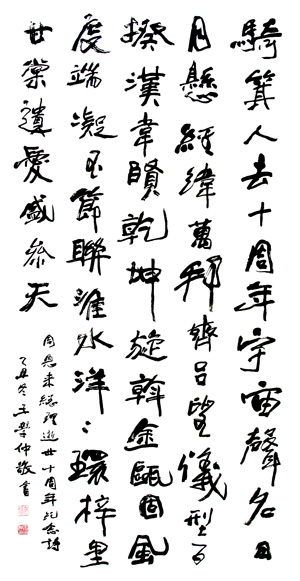 騎箕人去十周年宇宙聲名日
月懸經緯萬邦呂望儀型百
揆漢韋賢乾坤旋斡金甌固風
度端凝玉節聯淮水洋〻環梓里
甘棠遺愛盛參天
周恩來總理逝世十周年紀念詩
丁丑冬王學仲敬書